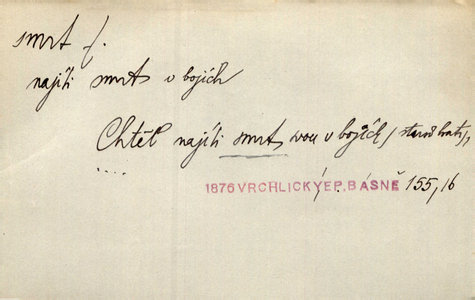 smrt f.
najíti smrt v bojích
Chtěl najíti smrt svou v bojích / starý
....
1876 VRCHLICKÝ EP. BÁSNĚ 155, 16